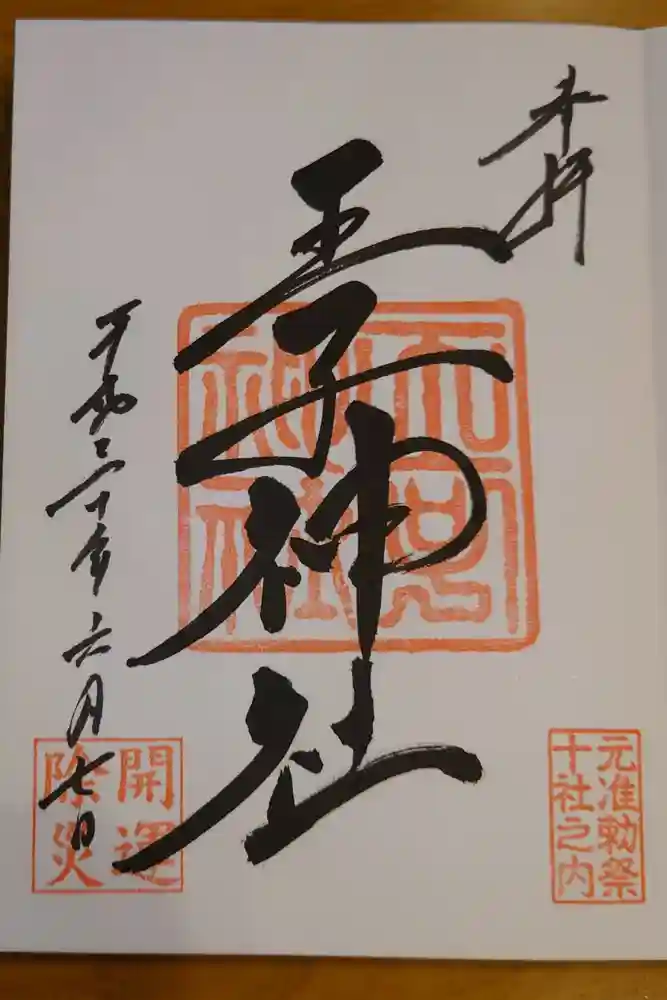 奉拝
王子神社
平成三十年六月七日
元准勅祭
十社之内
開運
除災